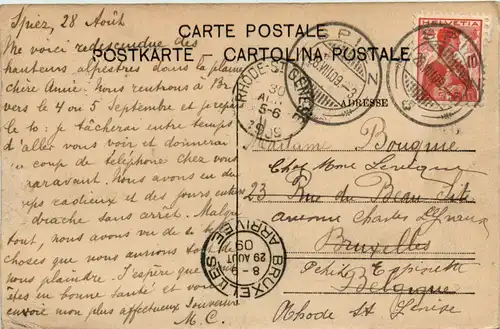 CARTE POSTALE
POSTKARTE - CARTOLINA POSTALE
ADRESSE
HELVETIA
Spiez, 28 Août
Me voici redescendue des
hauteurs alpestres dans la plaine
chère Annie. Nous rentrons à Brux.
vers le 4 ou 5 Septembre et
le 10: je tâcherai entre temps
d'aller vous voir et donnerai
un coup de téléphone chez vous
auparavant. Nous avons eu du
radieux et des jours
drache sans arrêt. Malgré
tout, nous avons vu de
choses que nous aurons
vous plaindre. J'espère que
êtes en bonne santé et vous
envoie mon plus affectueux Souvenir
M. C.
Madame Bougnie
Chez Mme Levêque
23 Rue du Beau Site
avenue Charles
Bruxelles
Petite Espinette
Belgique
Rhode St Genèse
RHODE-ST-GENÈSE
30
AOU
5-6
1909
SPIEZ
BRUXELLES
8-9
29 AOUT
09
ARRIVEE